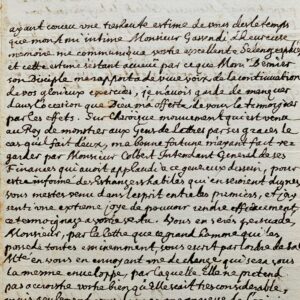 ayant conceu une tres haute estime de vous des le temps
que mon intime Monsieur Gassendi d'heureuse
memoire me communiqua vostre excellente Selenographie
et cette estime s'estant accreüe par ce que Monsr Bernier
son Disciple m'a rapporté de vive voix de la continuation
de vos glorieux exercices, je n'avois garde de manquer
dans l'occasion que Dieu m'a offerte de vous le temoigner
par les effets. Sur l'heroique mouvement qui est venu
au Roy de monstrer aux Gens de lettres par ses graces le
cas qu'il fait d'eux, ma bonne fortune m'ayant fait re-
garder par Monsieur Colbert Intendant General de ses
Finances qui avoit applaudi a ce genereux dessein, pour
estre des Estrangers habiles qui en seroient dignes
vous m'estes venu dans l'esprit entre les premiers, et j'ay
senti une extreme joye de pouvoir rendre effectivement
ce temoignage a vostre vertu. Vous en serés persuadé
Monsieur, par la lettre que ce grand homme qui les
possede toutes eminemment vous escrit par ordre de Sa
Mté en vous en envoyant une de change qui sera sous
la mesme enveloppe, par laquelle Elle ne pretend
pas accroistre vostre bien qu'elle sait tres considerable,